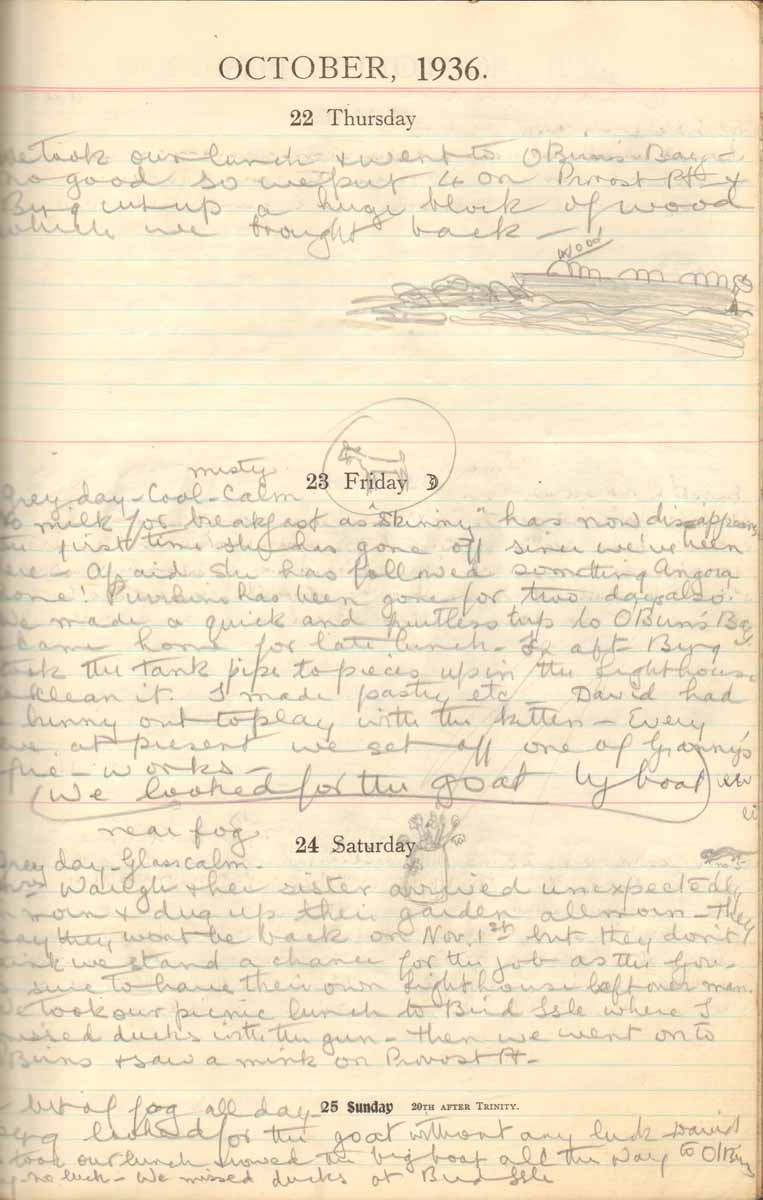 OCTOBER, 1936.
22 Thursday
We took our lunch & went to OBuns Bay -
no good so we put 4 on Provost Pt &
Byrg cut up a huge block of wood
which we brought back -
wood
misty
23 Friday
Grey day - Cool - Calm
No milk for breakfast as "Skinny" has now disappeared
the first time she has gone off since we've been
here - Afraid she has followed something Angora
home! Purrkins has been gone for two days also.
We made a quick and fruitless trip to OBuns Bay
& came home for late lunch - In aft - Byrg
took the tank pipe to pieces up in the lighthouse
to klean it. I made pastry etc - David had
bunny out to play with the kitten - Every
eve at present we set off one of Granny's
fire-works -
(We looked for the goat by boat)
near fog
24 Saturday
Grey day - Glass calm -
Mrs Waugh & her sister arrived unexpectedly
in morn & dug up their garden all morn - They
say they wont be back on Nov. 1st but they don't
think we stand a chance for the job as the Gov.
is sure to have their own lighthouse left over man.
We took our picnic lunch to Bird Isle where I
missed ducks with the gun - then we went on to
OBuns & saw a mink on Provost Pt -
25 Sunday 20TH AFTER TRINITY.
bit of fog all day -
Byrg looked for the goat without any luck - David
& I took our lunch & rowed the big boat all the way to OBuns
Bay - no luck - We missed ducks at Bird Isle